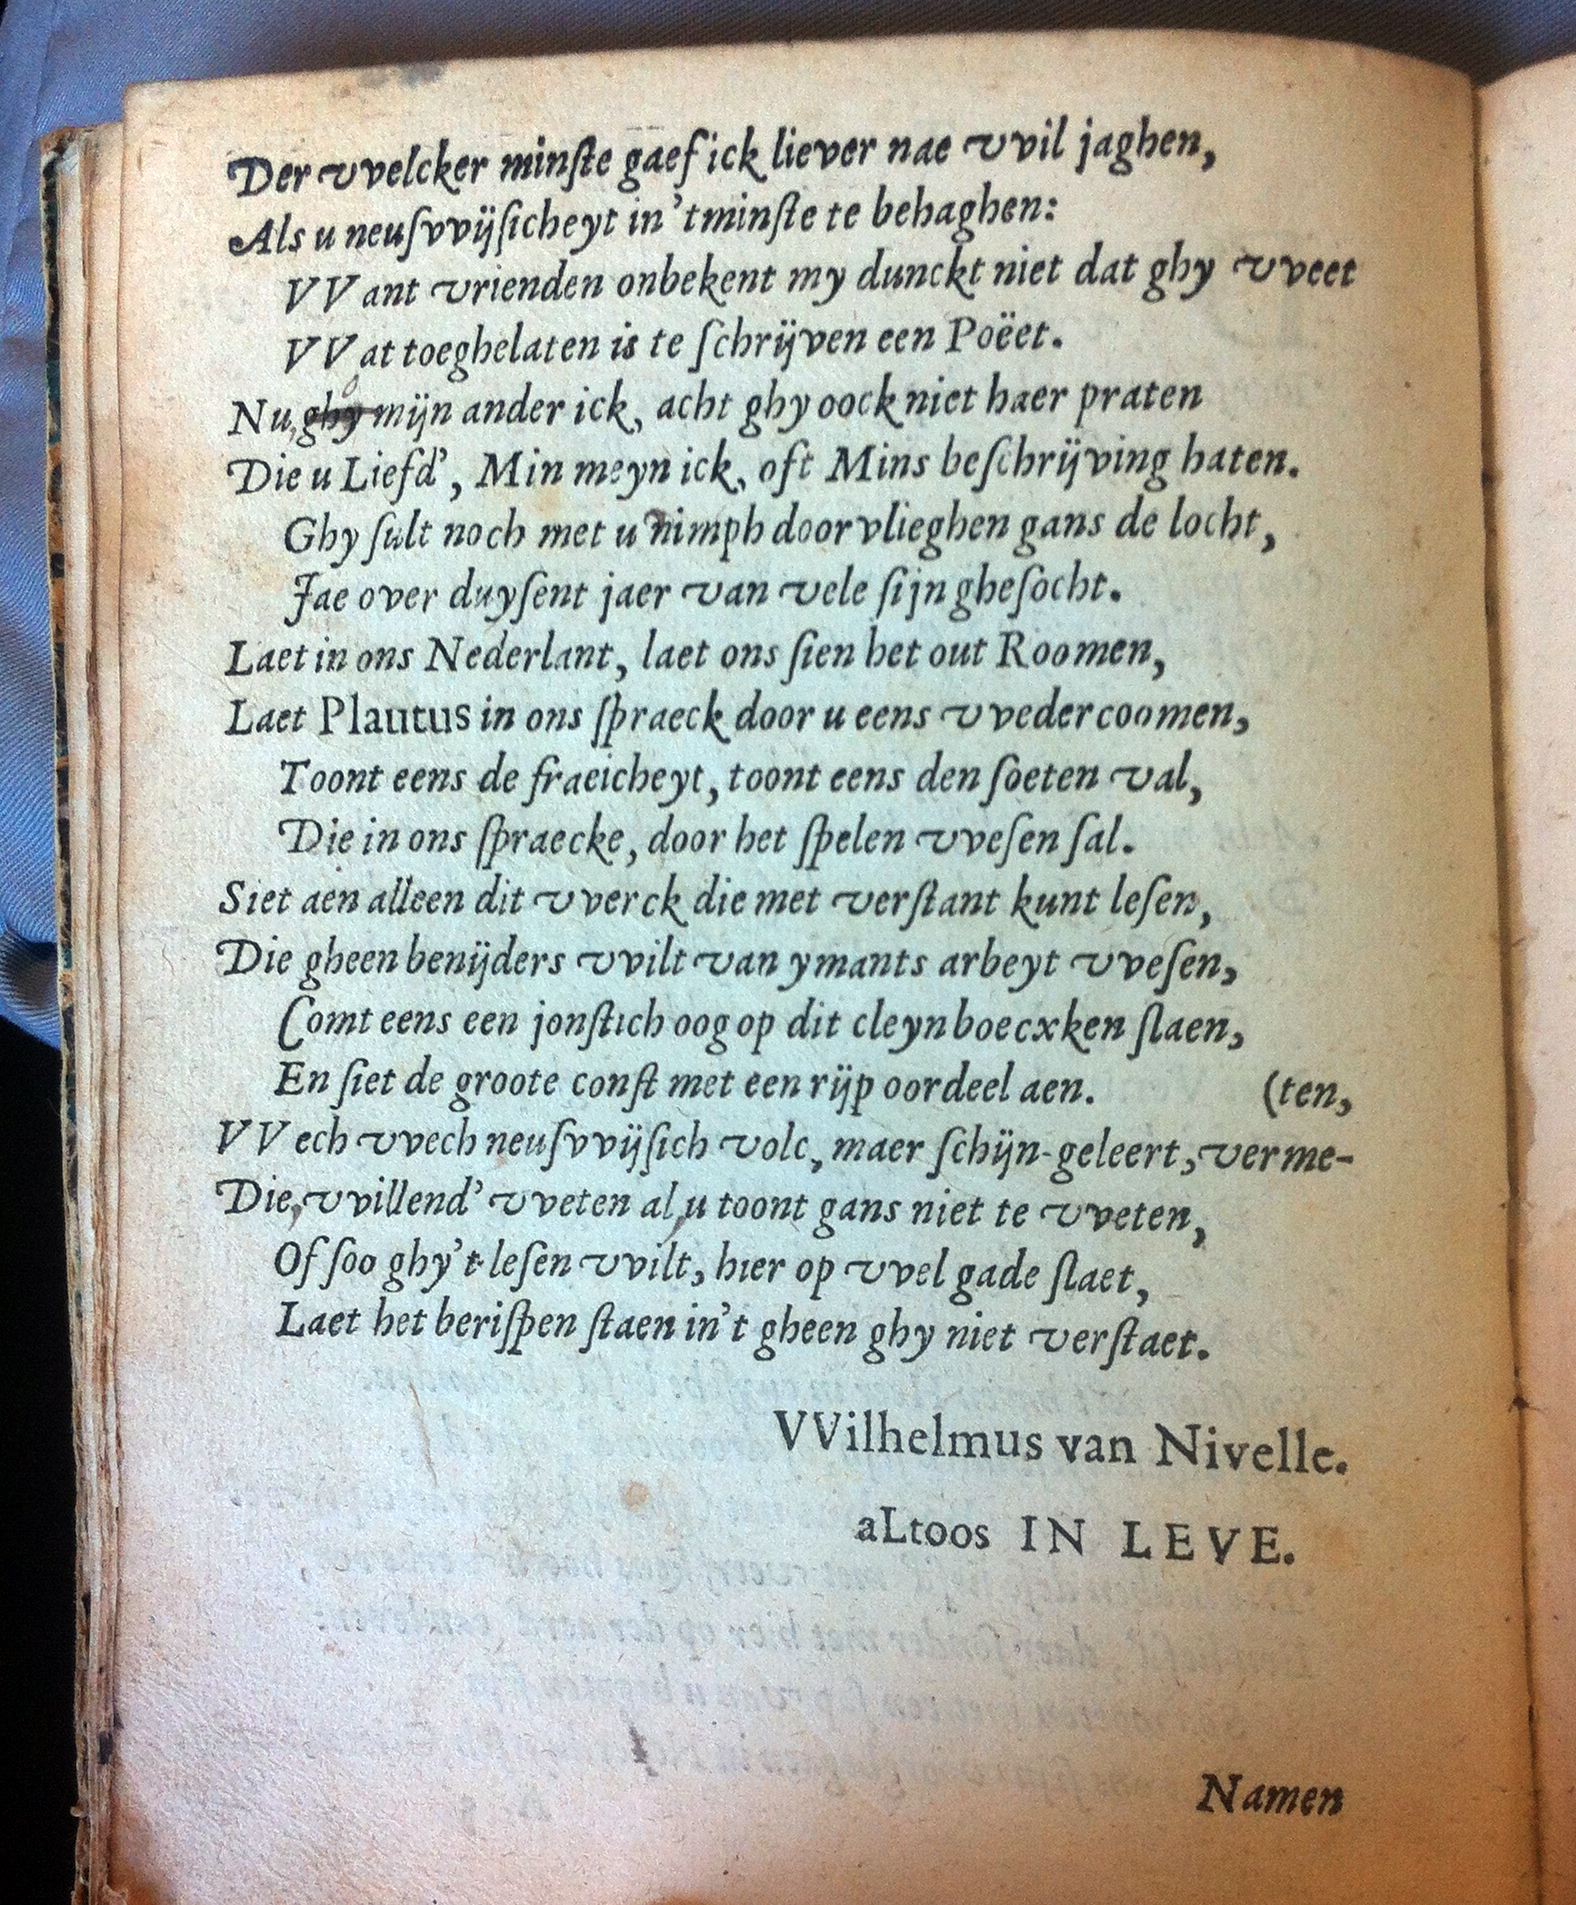 Der vvelcker minſte gaef ick liever nae vvil jaghen,
Als u neuſvvijſicheyt in 't minſte te behaghen:
VVant vrienden onbekent my dunckt niet dat ghy vveet
VVat toeghelaten is te ſchrijven een Poëet.
Nu, ghy mijn ander ick, acht ghy oock niet haer praten
Die u Liefd', Min meyn ick, oft Mins beſchrijving haten.
Ghy ſult noch met u nimph door vlieghen gans de locht,
Jae over duyſent jaer van vele ſijn gheſocht.
Laet in ons Nederlant, laet ons ſien het out Roomen,
Laet Plautus in ons ſpraeck door u eens vveder coomen,
Toont eens de fraeicheyt, toont eens den ſoeten val,
Die in ons ſpraecke, door het ſpelen vveſen ſal.
Siet aen alleen dit vverck die met verſtant kunt leſen,
Die gheen benijders vvilt van ymants arbeyt vveſen,
Comt eens een jonſtich oog op dit cleyn boecxken ſlaen,
En ſiet de groote conſt met een rijp oordeel aen. (ten,
VVech vvech neuſvvijſich volc, maer ſchijn-geleert, verme-
Die, vvillend' vveten al, u toont gans niet te vveten,
Of ſoo ghy't leſen vvilt, hier op vvel gade ſlaet,
Laet het beriſpen ſtaen in't gheen ghy niet verſtaet.
VVilhelmus van Nivelle.
aLtoos IN LEVE.
Namen